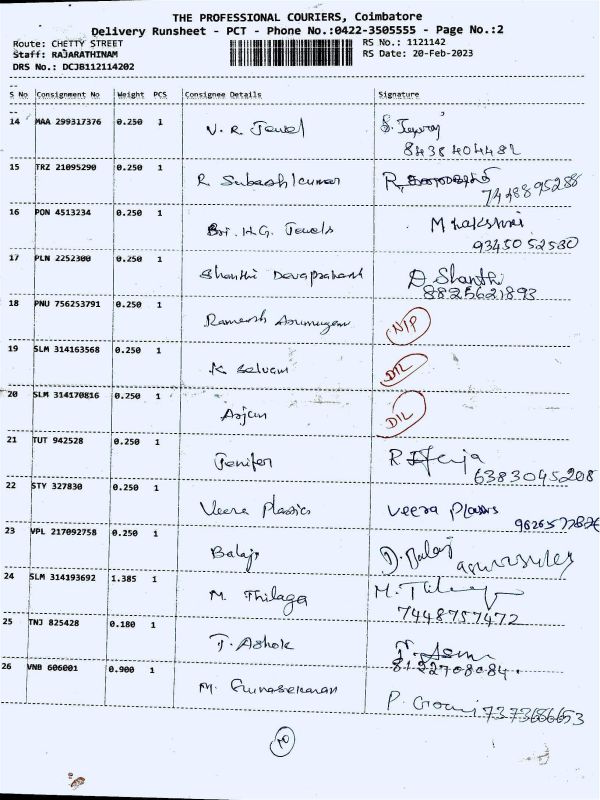 THE PROFESSIONAL COURIERS, Coimbatore
Delivery Runsheet - PCT - Phone No.:0422-3505555 - Page No.:2
Route: CHETTY STREET RS No.: 1121142
Staff: RAJARATHINAM RS Date: 20-Feb-2023
DRS No.: DCJB112114202
S No Consignment No Weight PCS Consignee Details Signature
14 MAA 299317376 0.250 1 V. R. Jewel
8438404482
15 TRZ 21095290 0.250 1 R. Subashkumar
7448895288
16 PON 4513234 0.250 1 H.G. Jewels
9345052530
17 PLN 2252300 0.250 1 Shanthi Devaprakash D. Shanthi
8825621893
18 PNU 756253791 0.250 1 Ramesh Arumugam N/P
19 SLM 314163568 0.250 1 K Selvam D/L
20 SLM 314170816 0.250 1 Arjun D/L
21 TUT 942528 0.250 1 Jenifer
6383045208
22 STY 327830 0.250 1 Veera Plastics Veera Plastics
23 VPL 217092758 0.250 1 Balaji D. Balaji
24 SLM 314193692 1.385 1 M. Thilaga
7448757472
25 TNJ 825428 0.180 1 T. Ashok
8122708084.
26 VNB 606001 0.900 1 M. Gunasekaran